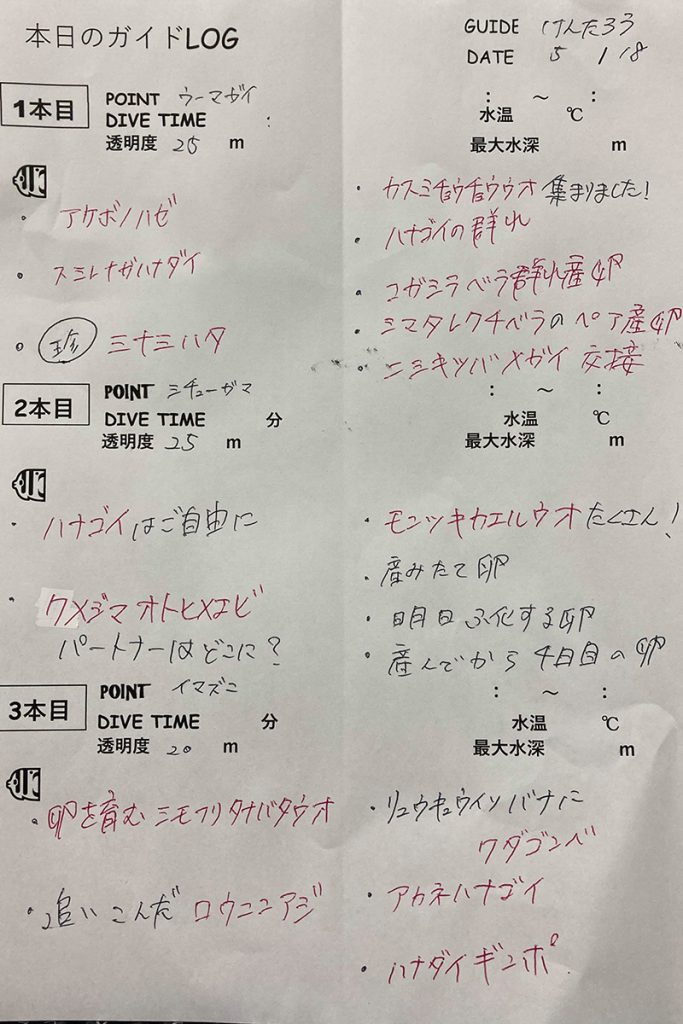 本日のガイドLOG
GUIDE けんたろう
DATE 5 / 18
1本目
POINT ウーマガイ
DIVE TIME :
透明度 25 m
: ～ :
水温 ℃
最大水深 m
・アケボノハゼ
・スミレナガハナダイ
・珍 ミナミハタ
・カスミチョウチョウウオ 集まりました!
・ハナゴイの群れ
・コガシラベラ群れ産卵
・シマタレクチベラの ペア産卵
・ニシキツバメガイ 交接
2本目
POINT シチューガマ
DIVE TIME 分
透明度 25 m
: ～ :
水温 ℃
最大水深 m
・ハナゴイはご自由に
・クメジマオトヒメエビ
パートナーはどこに?
・モンツキカエルウオたくさん!
・産みたて卵
・明日ふ化する卵
・産んでから4日目の卵
3本目
POINT イマズニ
DIVE TIME 分
透明度 20 m
: ～ :
水温 ℃
最大水深 m
・卵を育む シモフリタナバタウオ
・追いこんだ ロウニンアジ
・リュウキュウイソバナに
クダゴンベ
・アカネハナゴイ
・ハナダイギンポ